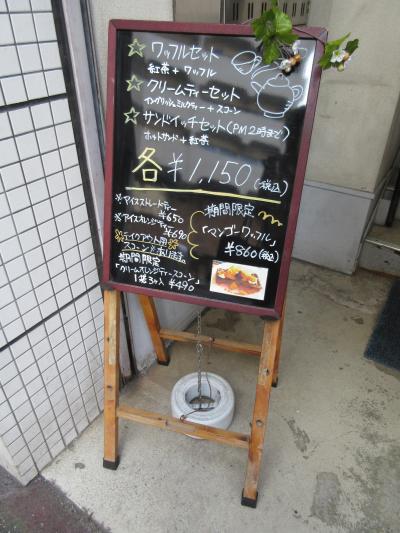 ☆ワッフルセット
紅茶+ワッフル
☆クリームティーセット
イングリッシュミルクティー+スコーン
☆サンドイッチセット(PM2時まで)
ホットサンド+紅茶
各¥1,150(税込)
※アイスストレートティー
¥650
※アイスオレンジティー
¥690
テイクアウト用
スコーンも有ります
期間限定
「クリームオレンジティースコーン」
1袋3ヶ入 ¥490
期間限定
「マンゴーワッフル」
¥860(税込)